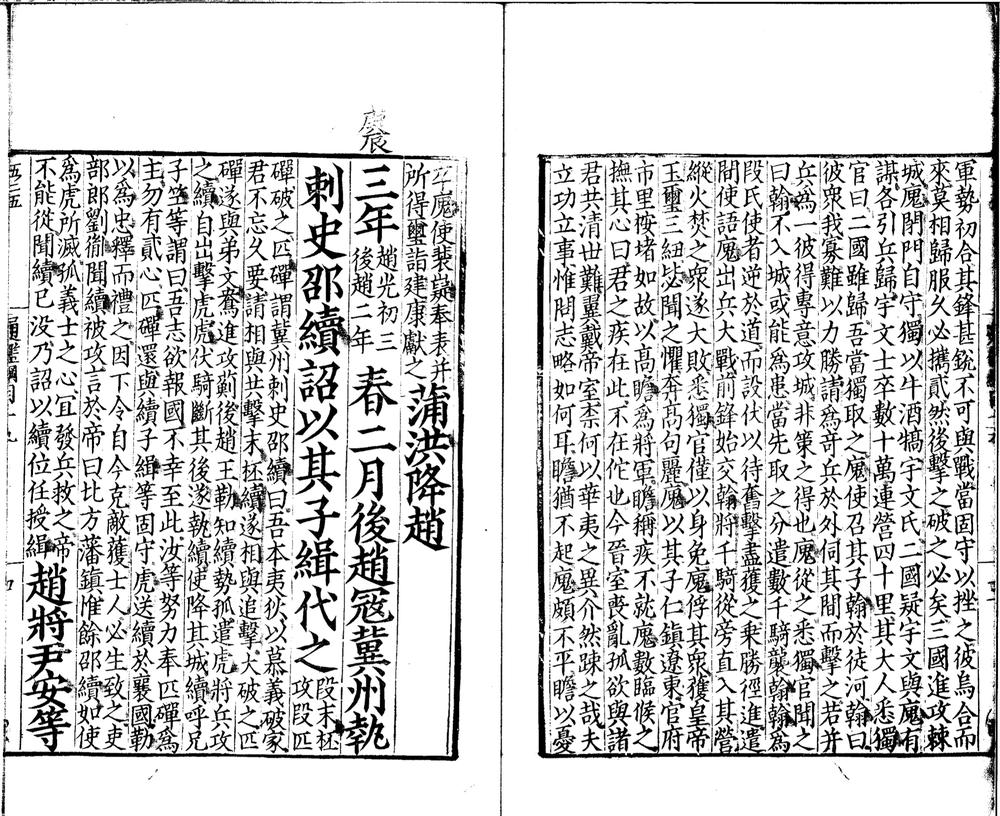 軍勢初合其鋒甚銳不可與戰當固守以挫之彼烏合而
來莫相歸服久必攜貳然後擊之破之必矣三國進攻棘
城廆閉門自守獨以牛酒犒宇文氏二國疑宇文與廆有
謀各引兵歸宇文士卒數十萬連營四十里其大人悉獨
官曰二國雖歸吾當獨取之廆使召其子翰於徒河翰曰
彼衆我寡難以力勝請爲奇兵於外伺其間而擊之若并
兵爲一彼得專意攻城非策之得也廆從之悉獨官聞之
曰翰不入城或能爲患當先取之分遣數千騎襲翰翰爲
段氏使者逆於道而設伏以待舊擊盡獲之乘勝徑進遣
間使語廆出兵大戰前鋒始交翰將千騎從旁直入其營
縱火焚之衆遂大敗悉獨官僅以身免廆俘其衆獲皇帝
玉璽三紐毖聞之懼奔高句麗廆以其子仁鎮遼東官府
市里桉堵如故以高瞻爲將軍瞻稱疾不就廆數臨候之
撫其心曰君之疾在此不在佗也今晉室喪亂孤欲與諸
君共清世難翼戴帝室柰何以華夷之異介然踈之哉夫
立功立事惟問志略如何耳瞻猶不起廆頗不平瞻以憂
卒廆使裴嶷奉表并
所得璽詣建康獻之
蒲洪降趙
庚辰
三年
趙光初三
後趙二年
春二月後趙冦冀州執
刺史邵續詔以其子緝代之
段末柸
攻段匹
磾破之匹磾謂冀州刺史邵續曰吾本夷狄以慕義破家
君不忘久要請相與共擊末柸續遂相與追擊大破之匹
磾遂與弟文鴦進攻薊後趙王勒知續勢孤遣虎將兵攻
之續自出擊虎虎伏騎斷其後遂執續使降其城續呼兄
子笁等謂曰吾志欲報國不幸至此汝等努力奉匹磾爲
主勿有貳心匹磾還與續子緝等固守虎送續於襄國勒
以爲忠釋而禮之因下令自今克敵獲士人必生致之吏
部郎劉胤聞續被攻言於帝曰北方藩鎮惟餘邵續如使
爲虎所滅孤義士之心宜發兵救之帝
不能從聞續已没乃詔以續位任授緝
趙將尹安等